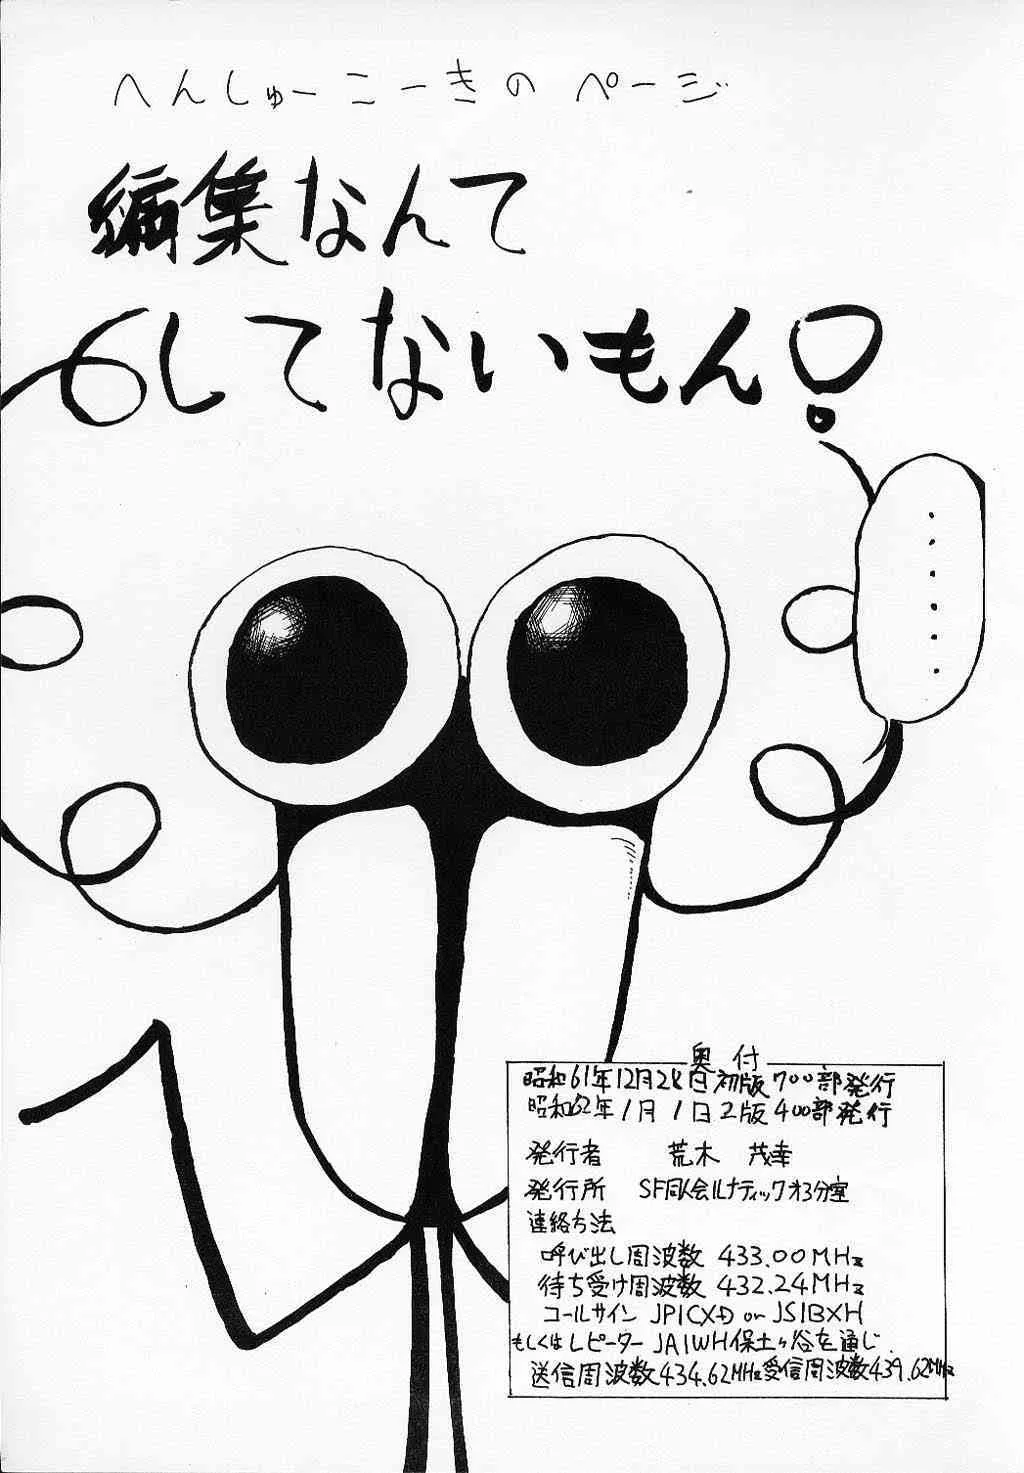 へんしゅーこーきのページ
編集なんて
してないもん!
......
奥付
昭和61年12月28日初版700部発行
昭和62年1月1日2版400部発行
発行者 荒木 茂幸
発行所 SF同人会ルナティックオ3分室
連絡方法
呼び出し周波数 433.00MHz
待ち受け周波数 432.24MHz
コールサイン JP1CXD or JS1BXH
もしくはレピーター JA1WH保土ヶ谷を通じ.
送信周波数434.62MHz受信周波数439.62MHz